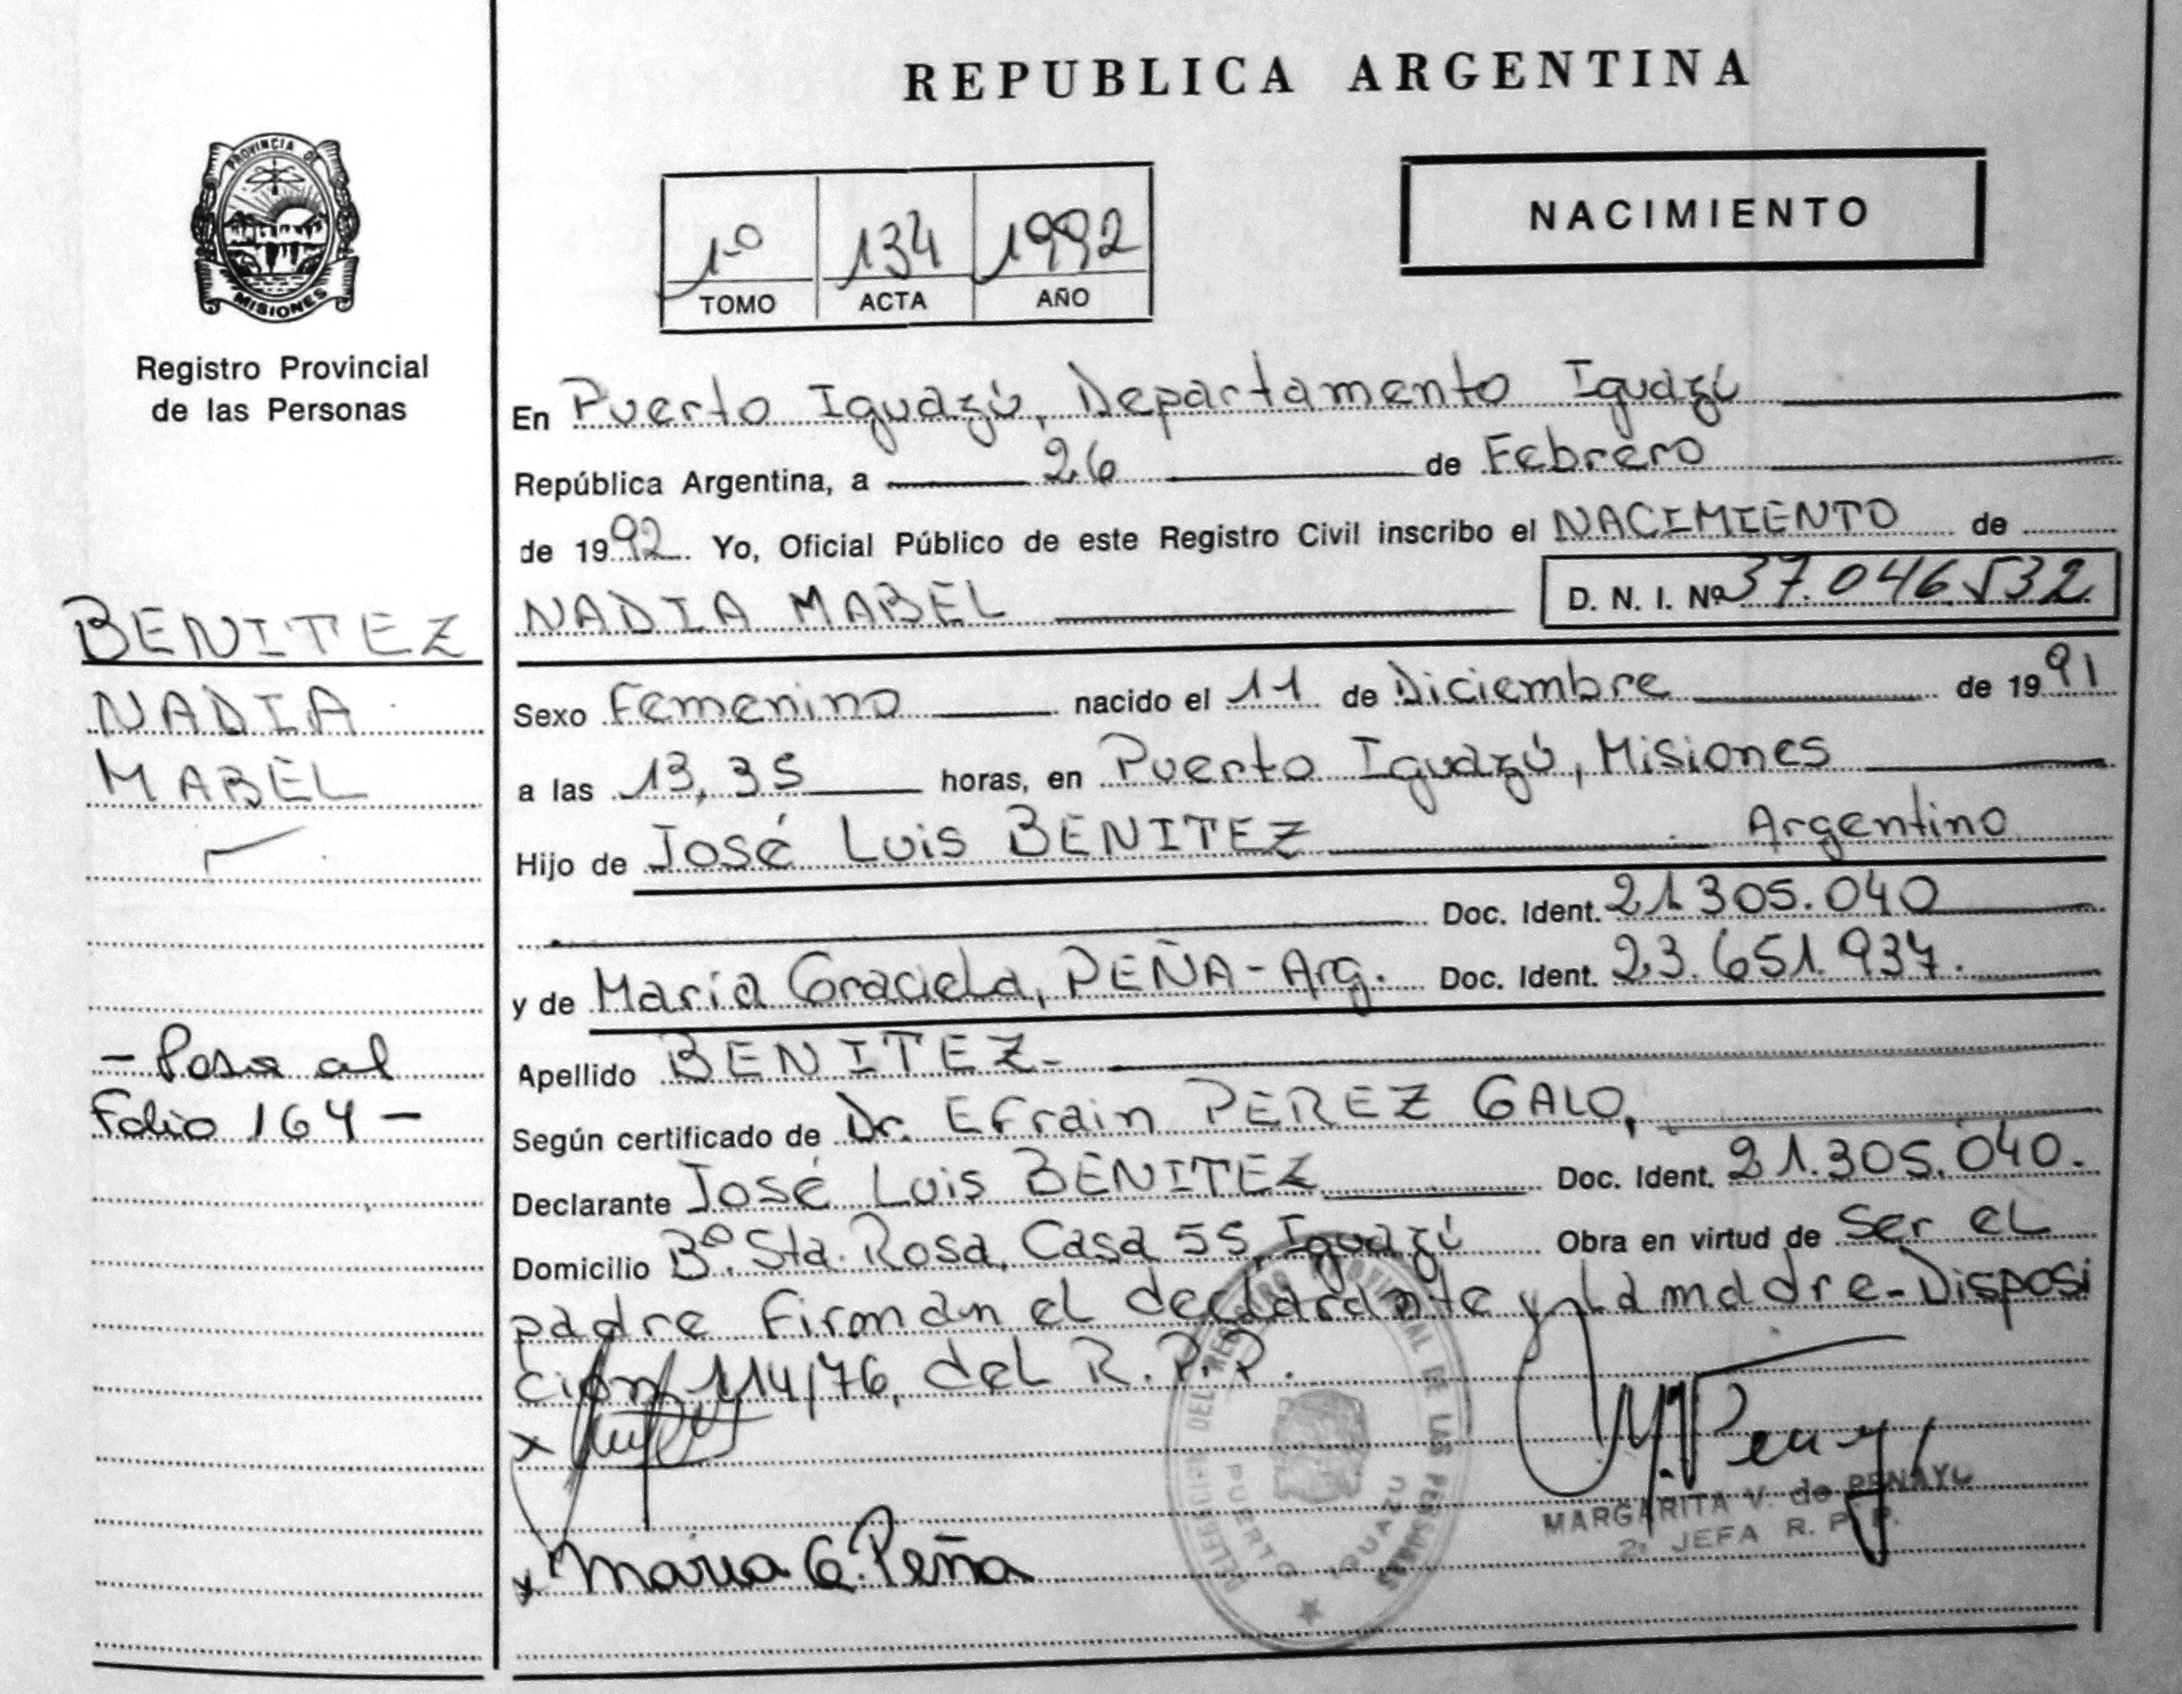 REPUBLICA ARGENTINA
PROVINCIA DE
MISIONES
Registro Provincial
de las Personas
1º 134 1992
TOMO ACTA AÑO
NACIMIENTO
En Puerto Iguazú, Departamento Iguazú
República Argentina, a 26 de Febrero
de 1992. Yo, Oficial Público de este Registro Civil inscribo el NACIMIENTO de
NADIA MABEL D. N. I. Nº 37.046.532
BENITEZ
NADIA
MABEL
Sexo Femenino nacido el 11 de Diciembre de 1991
a las 13,35 horas, en Puerto Iguazú, Misiones
Hijo de José Luis BENITEZ Argentino
Doc. Ident. 21.305.040
y de María Graciela, PEÑA-Arg. Doc. Ident. 23.651.937.
- Pasa al
Folio 164 -
Apellido BENITEZ-
Según certificado de Dr. Efrain PEREZ GALO,
Declarante José Luis BENITEZ Doc. Ident. 21.305.040.
Domicilio Bº. Sta. Rosa, Casa 55, Iguazú Obra en virtud de ser el
padre Firman el declarante y la madre-Disposi
ción 114/76, del R.P.P.
x
x Maria G. Peña
DEL REGISTRO PROVINCIAL DE LAS PERSONAS
PUERTO IGUAZU
MARGARITA V. de PENAYO
2º JEFA R. P. P.